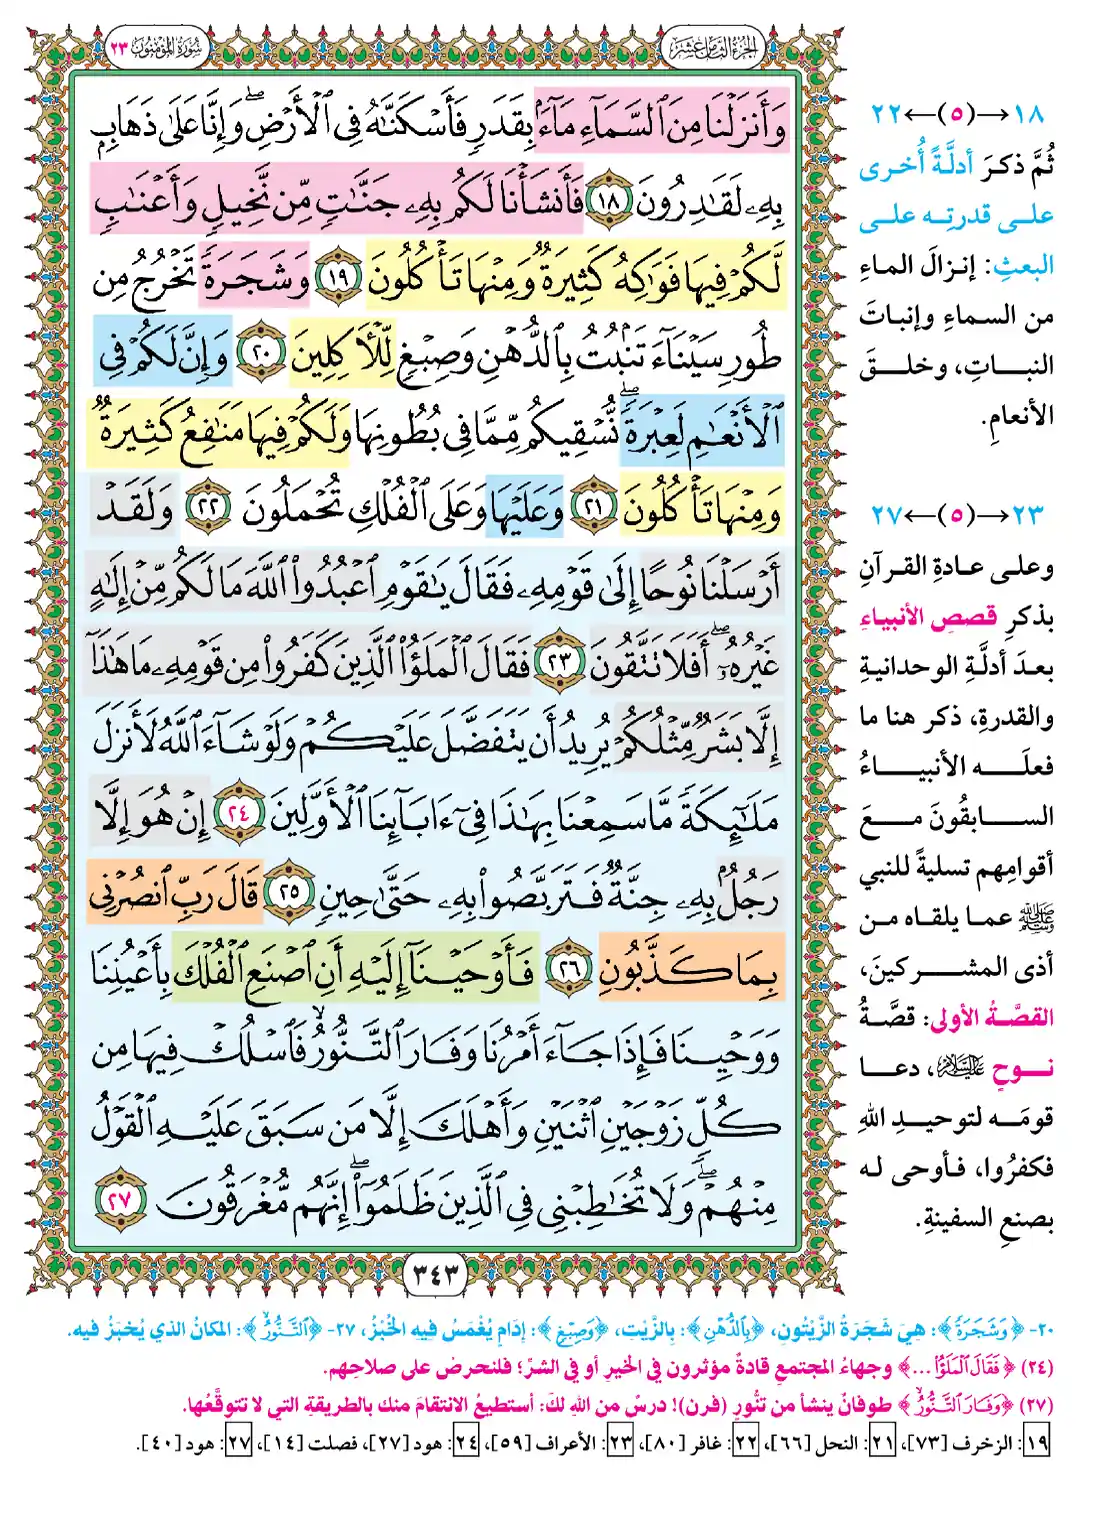 الجزء الثامن عشر
سورة المؤمنون ٢٣
وَأَنزَلْنَا مِنَ ٱلسَّمَآءِ مَآءًۢ بِقَدَرٍ فَأَسْكَنَّٰهُ فِى ٱلْأَرْضِ ۖ وَإِنَّا عَلَىٰ ذَهَابٍۭ
بِهِۦ لَقَٰدِرُونَ ١٨ فَأَنشَأْنَا لَكُم بِهِۦ جَنَّٰتٍ مِّن نَّخِيلٍ وَأَعْنَٰبٍ
لَّكُمْ فِيهَا فَوَٰكِهُ كَثِيرَةٌ وَمِنْهَا تَأْكُلُونَ ١٩ وَشَجَرَةً تَخْرُجُ مِن
طُورِ سَيْنَآءَ تَنۢبُتُ بِٱلدُّهْنِ وَصِبْغٍ لِّلْءَاكِلِينَ ٢٠ وَإِنَّ لَكُمْ فِى
ٱلْأَنْعَٰمِ لَعِبْرَةً ۖ نُّسْقِيكُم مِّمَّا فِى بُطُونِهَا وَلَكُمْ فِيهَا مَنَٰفِعُ كَثِيرَةٌ
وَمِنْهَا تَأْكُلُونَ ٢١ وَعَلَيْهَا وَعَلَى ٱلْفُلْكِ تُحْمَلُونَ ٢٢ وَلَقَدْ
أَرْسَلْنَا نُوحًا إِلَىٰ قَوْمِهِۦ فَقَالَ يَٰقَوْمِ ٱعْبُدُوا۟ ٱللَّهَ مَا لَكُم مِّنْ إِلَٰهٍ
غَيْرُهُۥٓ ۖ أَفَلَا تَتَّقُونَ ٢٣ فَقَالَ ٱلْمَلَؤُا۟ ٱلَّذِينَ كَفَرُوا۟ مِن قَوْمِهِۦ مَا هَٰذَآ
إِلَّا بَشَرٌ مِّثْلُكُمْ يُرِيدُ أَن يَتَفَضَّلَ عَلَيْكُمْ وَلَوْ شَآءَ ٱللَّهُ لَأَنزَلَ
مَلَٰٓئِكَةً مَّا سَمِعْنَا بِهَٰذَا فِىٓ ءَابَآئِنَا ٱلْأَوَّلِينَ ٢٤ إِنْ هُوَ إِلَّا
رَجُلٌۢ بِهِۦ جِنَّةٌ فَتَرَبَّصُوا۟ بِهِۦ حَتَّىٰ حِينٍ ٢٥ قَالَ رَبِّ ٱنصُرْنِى
بِمَا كَذَّبُونِ ٢٦ فَأَوْحَيْنَآ إِلَيْهِ أَنِ ٱصْنَعِ ٱلْفُلْكَ بِأَعْيُنِنَا
وَوَحْيِنَا فَإِذَا جَآءَ أَمْرُنَا وَفَارَ ٱلتَّنُّورُ ۙ فَٱسْلُكْ فِيهَا مِن
كُلٍّ زَوْجَيْنِ ٱثْنَيْنِ وَأَهْلَكَ إِلَّا مَن سَبَقَ عَلَيْهِ ٱلْقَوْلُ
مِنْهُمْ ۖ وَلَا تُخَٰطِبْنِى فِى ٱلَّذِينَ ظَلَمُوٓا۟ ۖ إِنَّهُم مُّغْرَقُونَ ٢٧
٣٤٣
١٨→(٥)←٢٢
ثُمَّ ذكرَ أدلَّةً أُخرى
على قدرتِه على
البعثِ: إنزالَ الماءِ
من السماءِ وإنباتَ
النباتِ، وخلقَ
الأنعامِ.
٢٣→(٥)←٢٧
وعلى عادةِ القرآنِ
بذكرِ قصصِ الأنبياءِ
بعدَ أدلَّةِ الوحدانيةِ
والقدرةِ، ذكر هنا ما
فعلَه الأنبياءُ
السابقُونَ معَ
أقوامِهم تسليةً للنبي
ﷺ عما يلقاه من
أذى المشركينَ،
القصَّةُ الأولى: قصَّةُ
نوحٍ عليه السلام، دعا
قومَه لتوحيدِ اللهِ
فكفرُوا، فأوحى له
بصنعِ السفينةِ.
٢٠- ﴿وَشَجَرَةً﴾: هِيَ شَجَرَةُ الزَّيْتُونِ، ﴿بِٱلدُّهْنِ﴾: بِالزَّيْتِ، ﴿وَصِبْغٍ﴾: إِدَامٍ يُغْمَسُ فِيهِ الخُبْزُ، ٢٧- ﴿ٱلتَّنُّورُ ۙ﴾: المكانُ الذي يُخبَزُ فيه.
(٢٤) ﴿فَقَالَ ٱلْمَلَؤُا۟ ...﴾ وجهاءُ المجتمعِ قادةٌ مؤثرون في الخيرِ أو في الشرِّ؛ فلنحرصْ على صلاحِهم.
(٢٧) ﴿وَفَارَ ٱلتَّنُّورُ ۙ﴾ طوفانٌ ينشأ من تنُّورٍ (فرن)! درسٌ من اللهِ لكَ: أستطيعُ الانتقامَ منك بالطريقةِ التي لا تتوقَّعُها.
١٩: الزخرف [٧٣]، ٢١: النحل [٦٦]، ٢٢: غافر [٨٠]، ٢٣: الأعراف [٥٩]، ٢٤: هود [٢٧]، فصلت [١٤]، ٢٧: هود [٤٠].